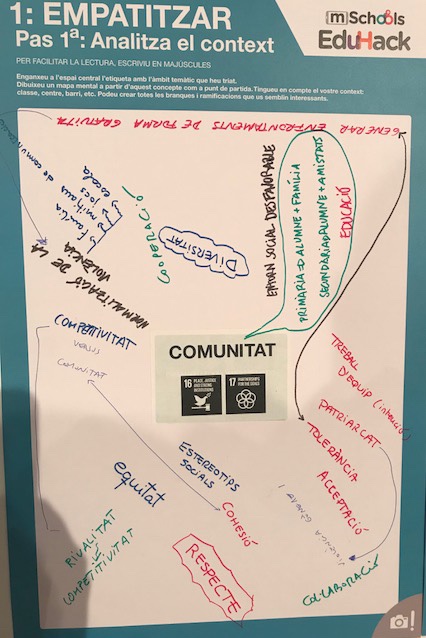 1: EMPATITZAR
Pas 1ª: Analitza el context
[m]Schools
EduHack
PER FACILITAR LA LECTURA, ESCRIVIU EN MAJÚSCULES
Enganxeu a l'espai central l'etiqueta amb l'àmbit temàtic que heu triat.
Dibuixeu un mapa mental a partir d'aquest concepte com a punt de partida. Tingueu en compte el vostre context:
classe, centre, barri, etc. Podeu crear totes les branques i ramificacions que us semblin interessants.
GENERAR ENFRONTAMENTS DE FORMA GRATUITA
de comunicació
Família
mitjans
jocs
escola
NORMALITZACIÓ DE LA
VIOLÈNCIA
COOPERACIÓ
DIVERSITAT
ENTORN SOCIAL DESFAVORABLE
PRIMÀRIA ⇒ ALUMNE + FAMÍLIA
SECUNDÀRIA ⇒ ALUMNE + AMISTATS
EDUCACIÓ
COMPETITIVITAT
VERSUS
COMUNITAT
COMUNITAT
16 PEACE, JUSTICE
AND STRONG
INSTITUTIONS
17 PARTNERSHIPS
FOR THE GOALS
TREBALL
D'EQUIP
PATRIARCAT
TOLERÀNCIA
ACCEPTACIÓ
COL·LABORACIÓ
ESTEREOTIPS
SOCIALS
COHESIÓ
equitat
RIVALITAT
COMPETITIVITAT
RESPECTE